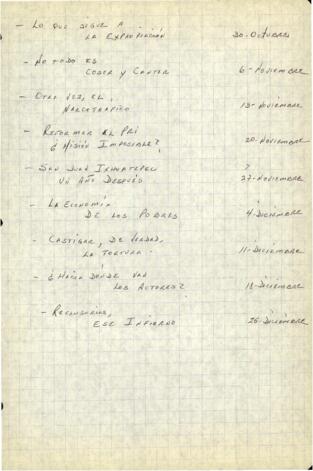 - Lo que sigue a
la Expropiación 30-Octubre
- No todo es
Coser y Cantar 6-Noviembre
- Otra vez, el
Narcotráfico 13-Noviembre
- Reformar el PRI
¿Misión Imposible? 20-Noviembre
- San Juan Ixhuatepec
Un Año Después 27-Noviembre
- La Economía
de los Pobres 4-Diciembre
- Castigar, de verdad,
la Tortura. 11-Diciembre
- ¿Hacia dónde van
los Actores? 18-Diciembre
- Reclusorios,
ese Infierno 25-Diciembre